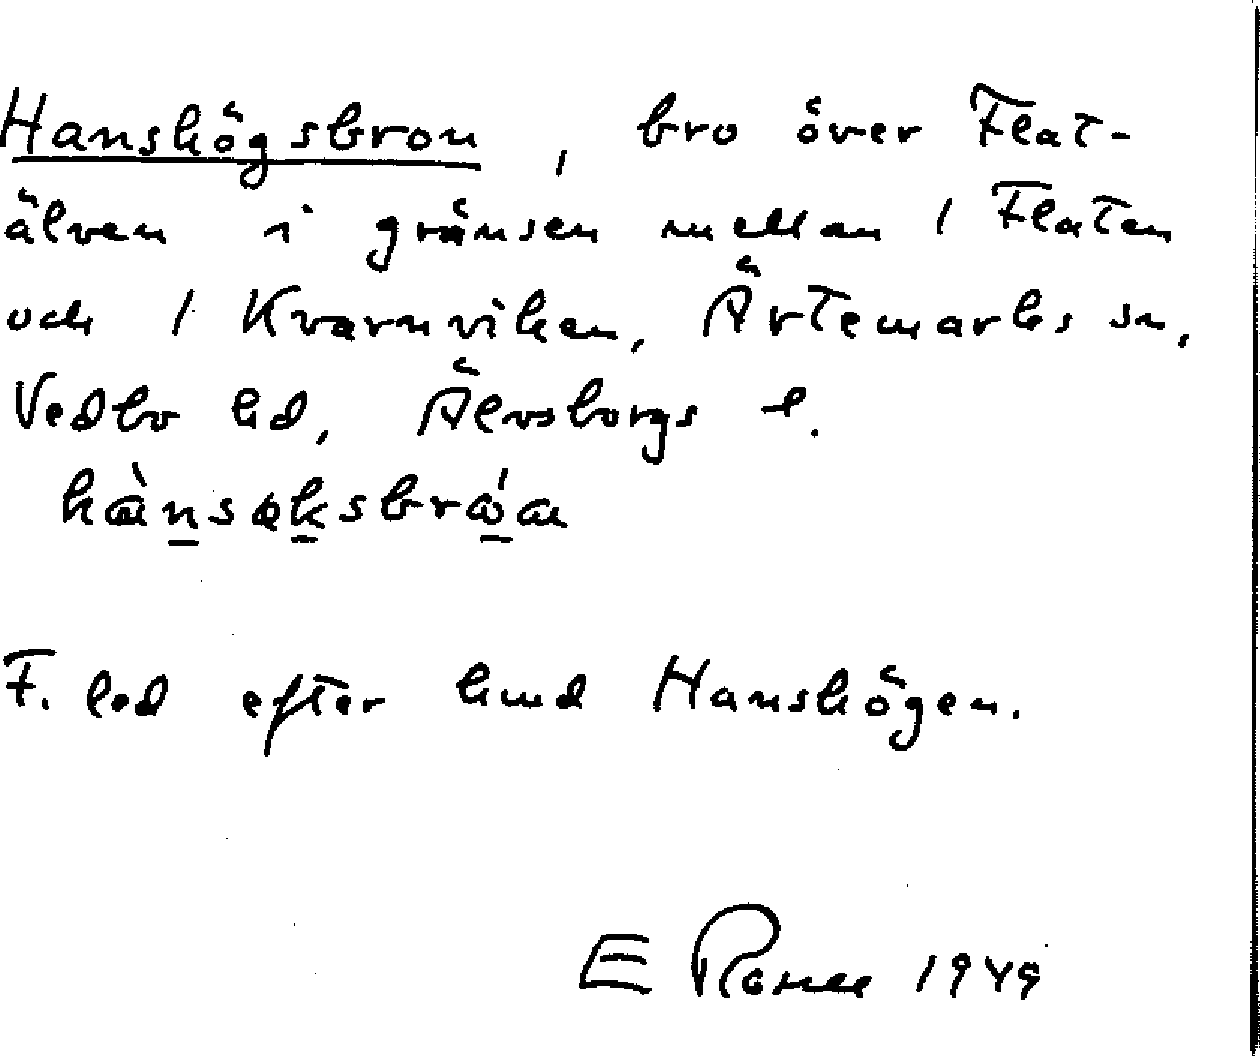 Hanshögsbron, bro över Flat-
älven i gränsen mellan 1 Flaten
och 1 Kvarnviken, Ärtemarks sn,
Vedbo hd, Älvsborgs l.
F. led efter hmd Hanshögen.
E 1949